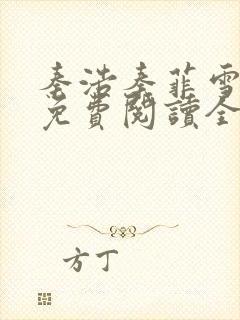 秦浩秦菲雪
免費閱讀全
方丁